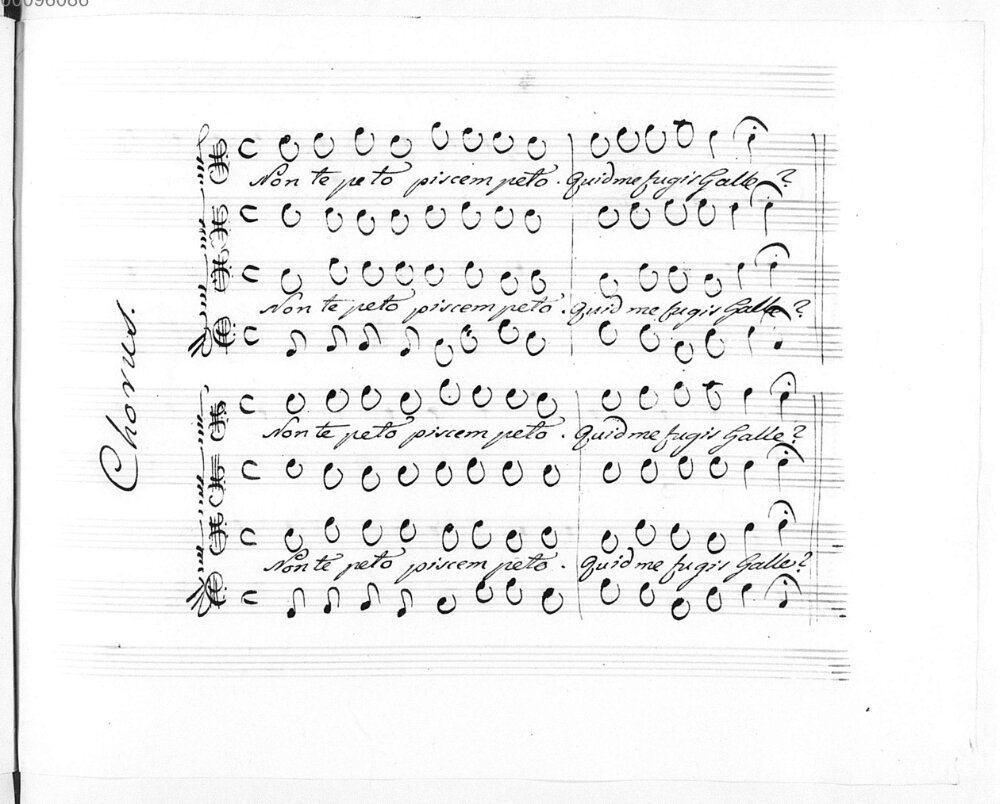 00096086
Chorus.
Non te peto piscem peto. Quid me fugis Galle?
Non te peto piscem peto. Quid me fugis Galle?
Non te peto piscem peto. Quid me fugis Galle?
Non te peto piscem peto. Quid me fugis Galle?